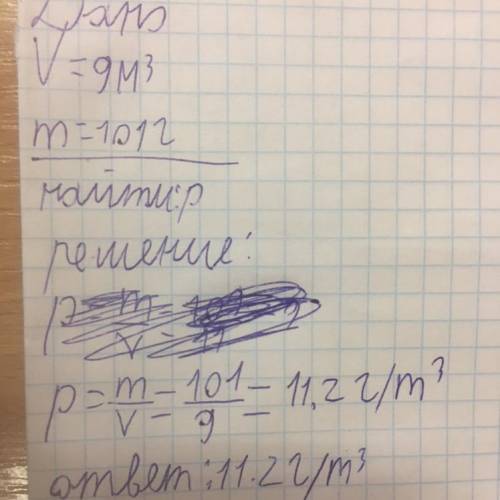 Дано
V=9м³
m=101г
найти:p
решение:
p=m/V=101/9=11,2г/m³
ответ:11.2г/m³